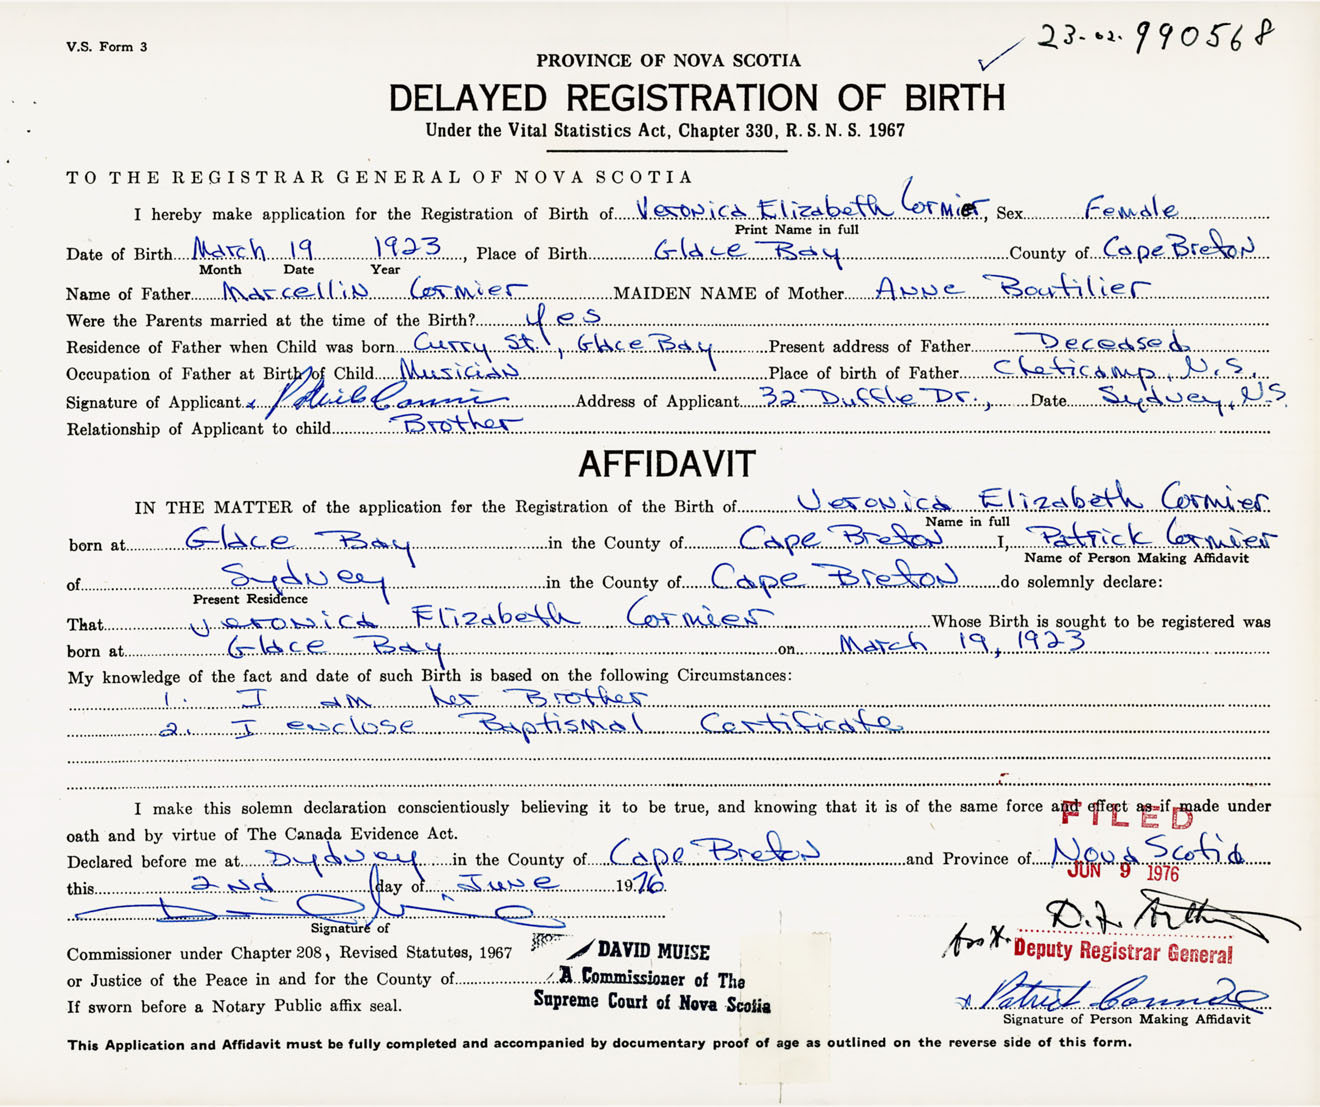 V.S. Form 3
23-02-990568
PROVINCE OF NOVA SCOTIA
DELAYED REGISTRATION OF BIRTH
Under the Vital Statistics Act, Chapter 330, R.S.N.S. 1967
TO THE REGISTRAR GENERAL OF NOVA SCOTIA
I hereby make application for the Registration of Birth of Veronica Elizabeth Cormier, Sex Female
Print Name in full
Date of Birth March 19 1923, Place of Birth Glace Bay County of Cape Breton
Month Date Year
Name of Father Marcellin Cormier MAIDEN NAME of Mother Anne Boutilier
Were the Parents married at the time of the Birth? Yes
Residence of Father when Child was born Curry St., Glace Bay Present address of Father Deceased
Occupation of Father at Birth of Child Musician Place of birth of Father Cheticamp, N.S.
Signature of Applicant x Address of Applicant 32 Duffle Dr., Date Sydney, N.S.
Relationship of Applicant to child Brother
AFFIDAVIT
IN THE MATTER of the application for the Registration of the Birth of Veronica Elizabeth Cormier
Name in full
born at Glace Bay in the County of Cape Breton I, Patrick Cormier
Name of Person Making Affidavit
of Sydney in the County of Cape Breton do solemnly declare:
Present Residence
That Veronica Elizabeth Cormier Whose Birth is sought to be registered was
born at Glace Bay on March 19, 1923
My knowledge of the fact and date of such Birth is based on the following Circumstances:
1. I am her Brother
2. I enclose Baptismal Certificate
I make this solemn declaration conscientiously believing it to be true, and knowing that it is of the same force and effect as if made under
oath and by virtue of The Canada Evidence Act.
FILED
Declared before me at Sydney in the County of Cape Breton and Province of Nova Scotia
JUN 9 1976
this 2nd day of June 1976.
Signature of
Commissioner under Chapter 208, Revised Statutes, 1967
or Justice of the Peace in and for the County of
If sworn before a Notary Public affix seal.
DAVID MUISE
A Commissioner of The
Supreme Court of Nova Scotia
Ass't. Deputy Registrar General
x Patrick Cormier
Signature of Person Making Affidavit
This Application and Affidavit must be fully completed and accompanied by documentary proof of age as outlined on the reverse side of this form.